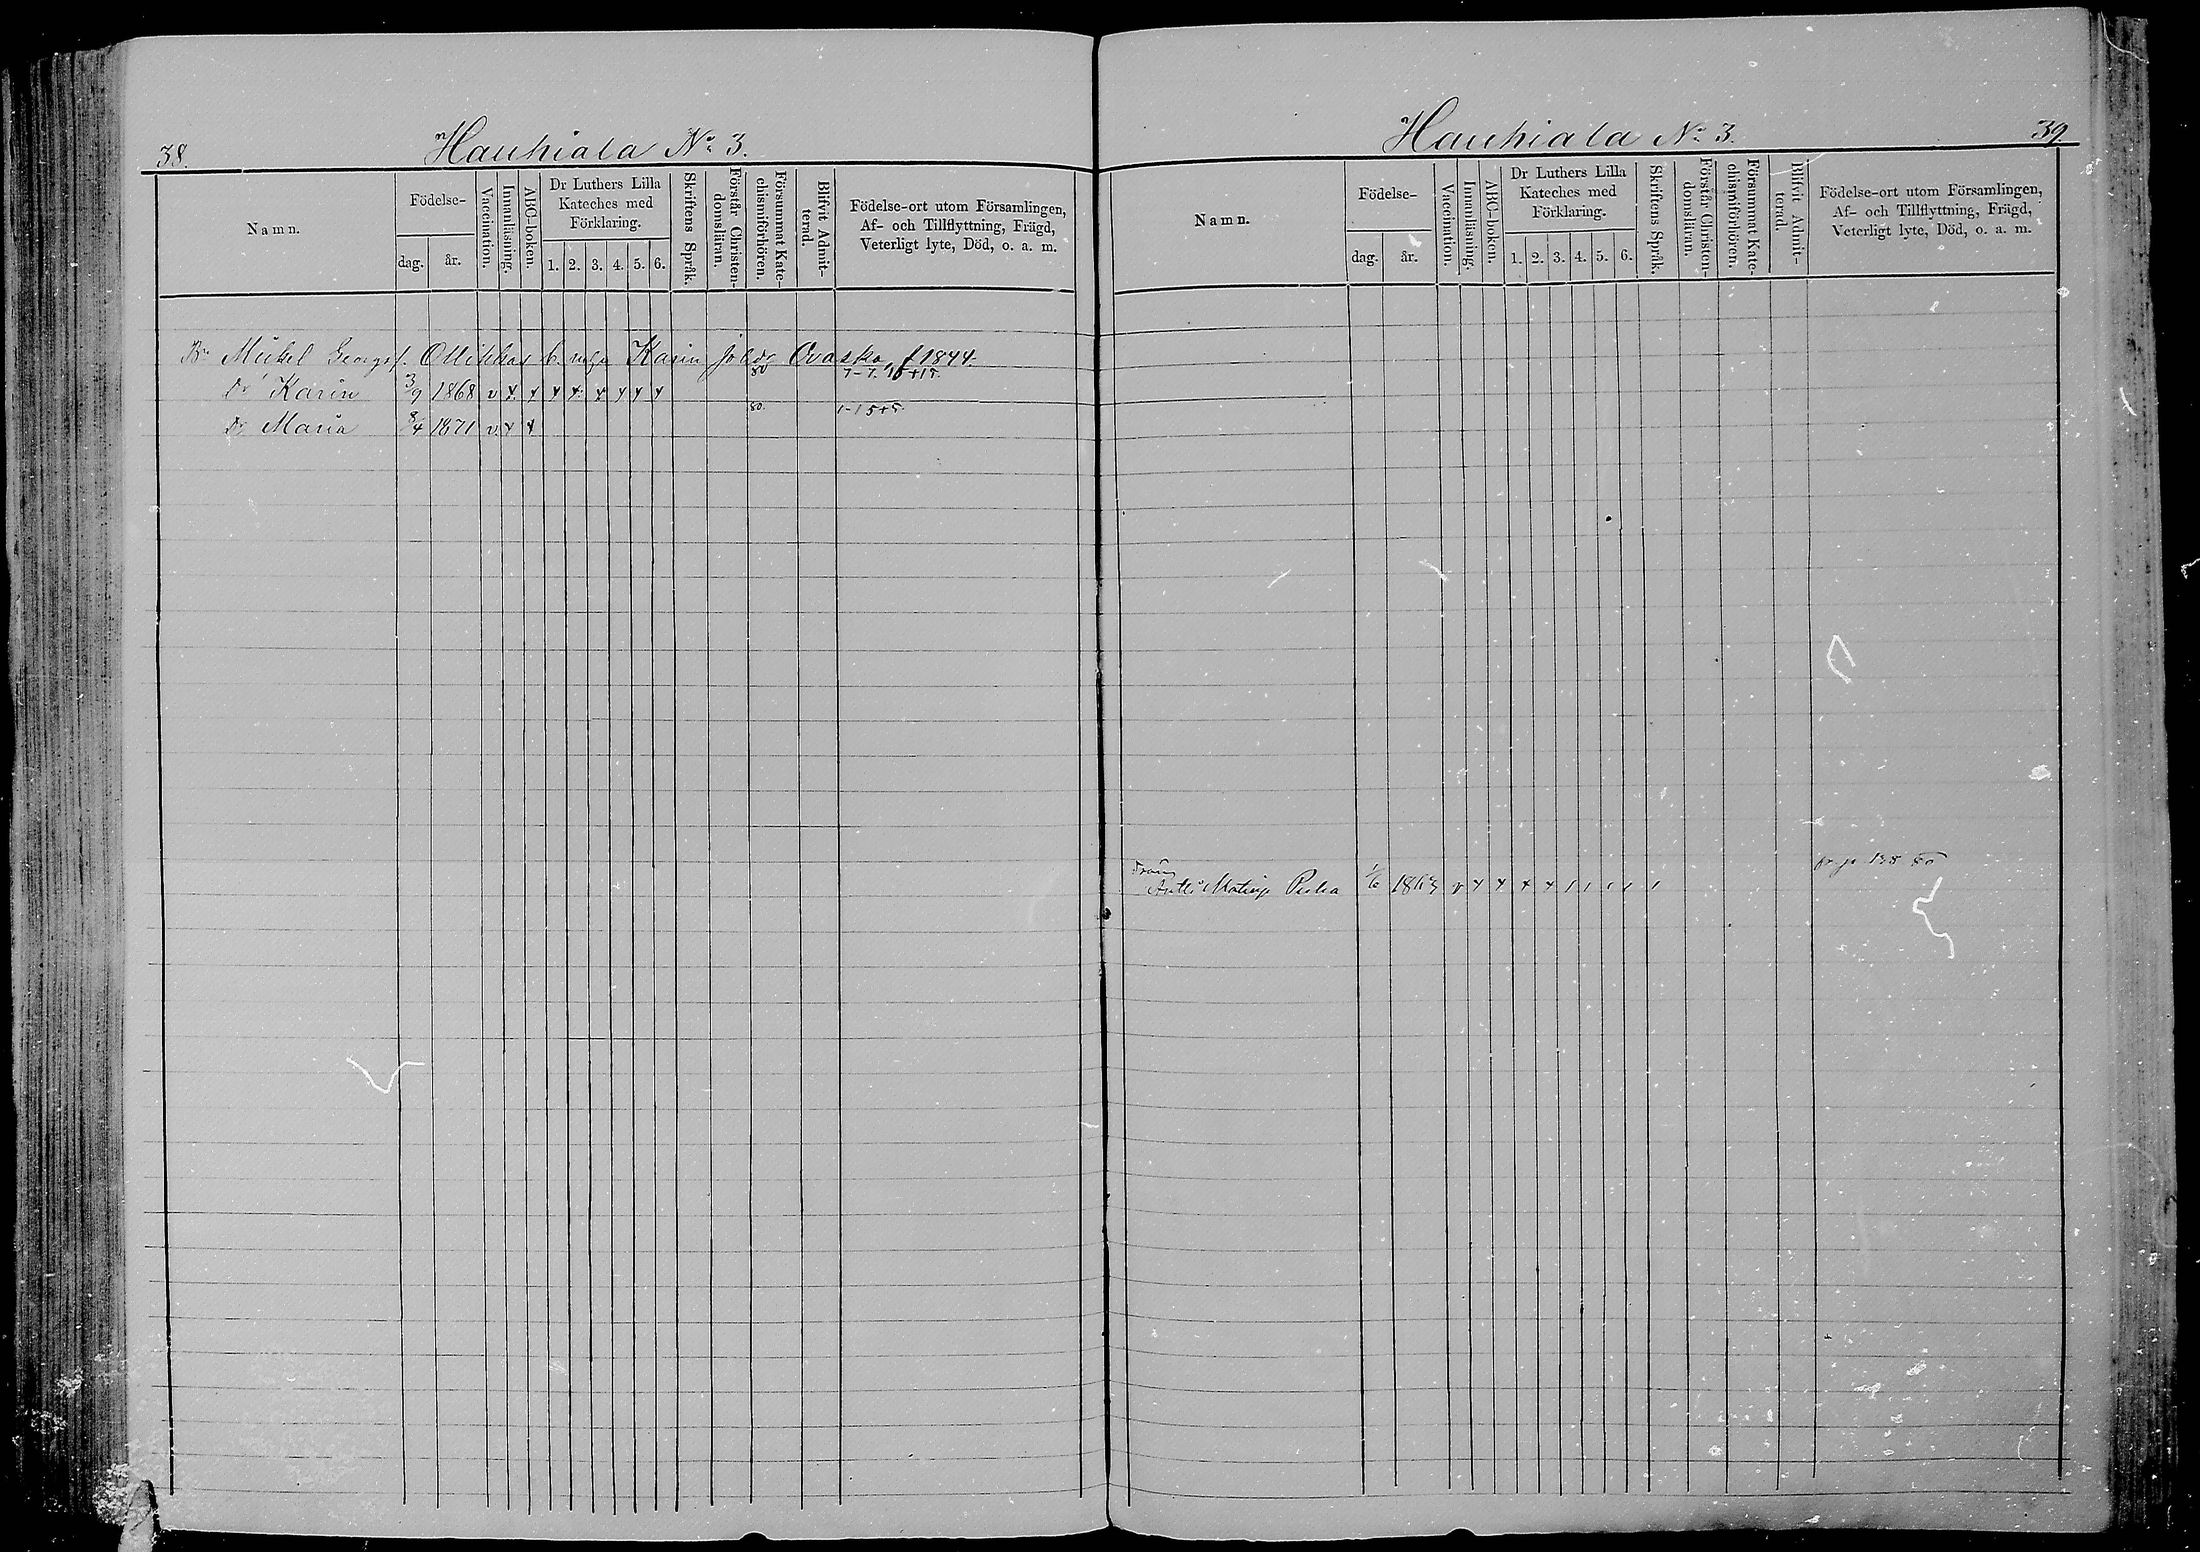 38.
Hauhiala No 3.
Namn.
Födelse-
dag.
år.
Vaccination.
Innanläsning.
ABC-boken.
Dr Luthers Lilla
Kateches med
Förklaring.
1. 2. 3. 4. 5. 6.
Skriftens Språk.
Förstår Christen-
domsläran.
Försummat Kate-
chismiförhören.
Blifvit Admit-
terad.
Födelse-ort utom Församlingen,
Af- och Tillflyttning, Frägd,
Veterligt lyte, Död, o. a. m.
Mickel Georgsf. Ollikkas Karin Ovaska f 1844.
80
Dr Karin 3/9 1868 v x x x x x x x x
80.
Dr Maria 8/4 1871 v. x x
Hauhiala No 3.
39.
Namn.
Födelse-
dag.
år.
Vaccination.
Innanläsning.
ABC-boken.
Dr Luthers Lilla
Kateches med
Förklaring.
1. 2. 3. 4. 5. 6.
Skriftens Språk.
Förstår Christen-
domsläran.
Försummat Kate-
chismiförhören.
Blifvit Admit-
terad.
Födelse-ort utom Församlingen,
Af- och Tillflyttning, Frägd,
Veterligt lyte, Död, o. a. m.
Dräng
Antti v x x x x / / / / /